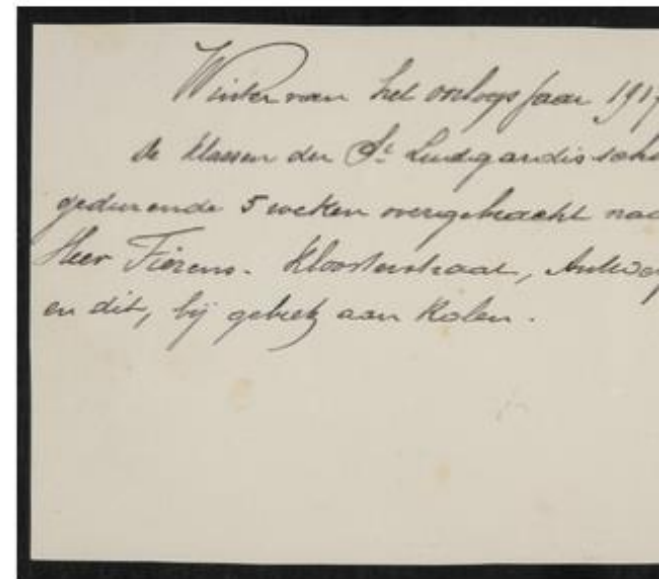 Winter van het oorlogsjaar 1917
de klassen der St. Ludgardis scho
gedurende 5 weken overgebracht naa
Heer Fierens. Kloosterstraat, Antwerp
en dit, bij gebrek aan Kolen.